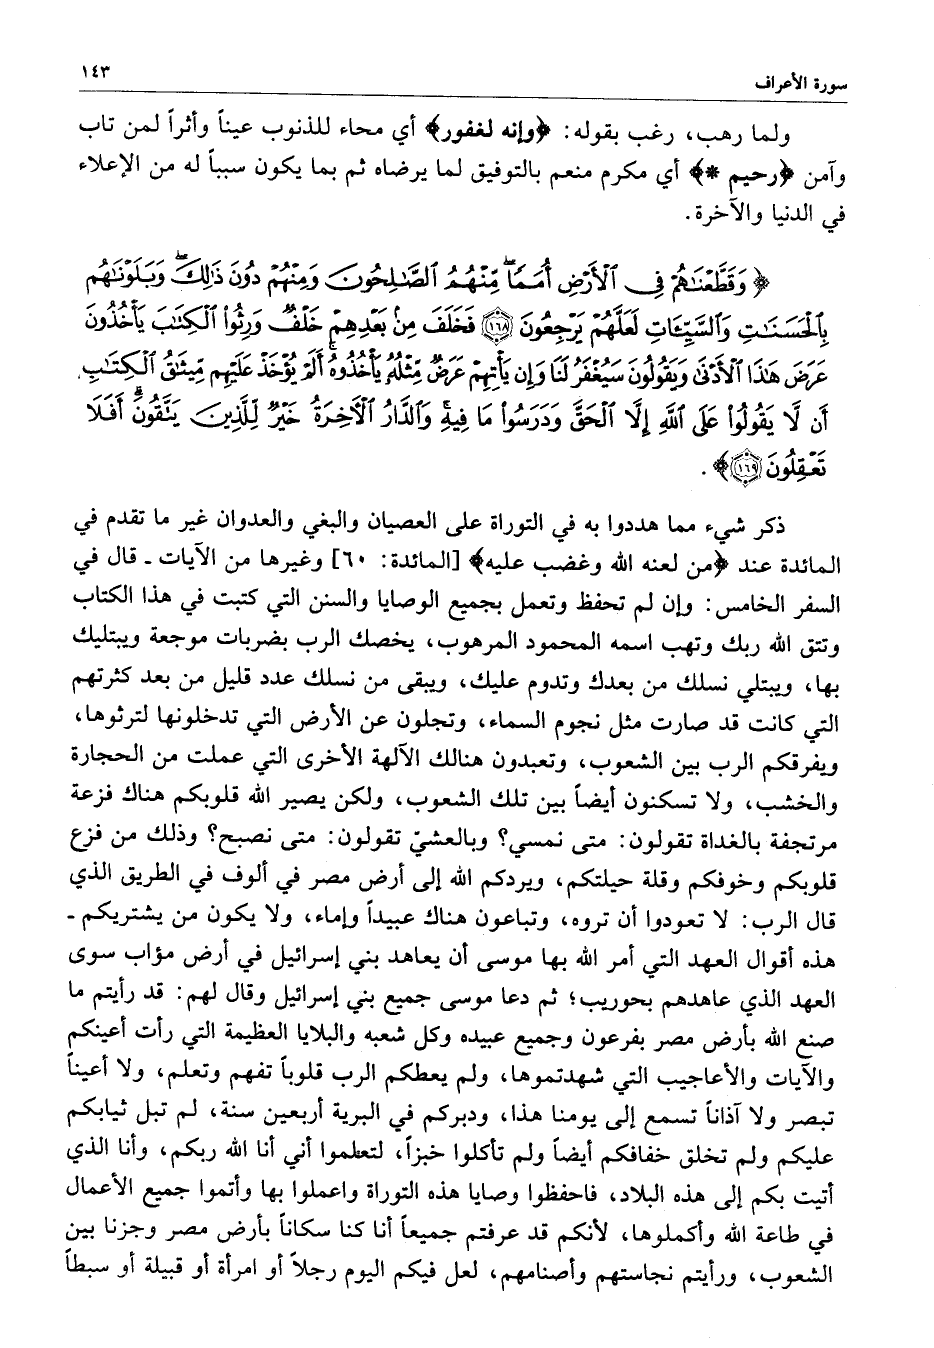 سورة الأعراف
١٤٣
ولما رهب، رغب بقوله: ﴿وإنه لغفور﴾ أي محاء للذنوب عيناً وأثراً لمن تاب
وآمن ﴿رحيم *﴾ أي مكرم منعم بالتوفيق لما يرضاه ثم بما يكون سبباً له من الإعلاء
في الدنيا والآخرة.
﴿ وَقَطَّعْنَاهُمْ فِي ٱلْأَرْضِ أُمَمًا ۖ مِّنْهُمُ ٱلصَّٰلِحُونَ وَمِنْهُمْ دُونَ ذَٰلِكَ ۖ وَبَلَوْنَٰهُم
بِٱلْحَسَنَٰتِ وَٱلسَّيِّـَٔاتِ لَعَلَّهُمْ يَرْجِعُونَ ﴿١٦٨﴾ فَخَلَفَ مِنۢ بَعْدِهِمْ خَلْفٌ وَرِثُوا۟ ٱلْكِتَٰبَ يَأْخُذُونَ
عَرَضَ هَٰذَا ٱلْأَدْنَىٰ وَيَقُولُونَ سَيُغْفَرُ لَنَا وَإِن يَأْتِهِمْ عَرَضٌ مِّثْلُهُۥ يَأْخُذُوهُ ۚ أَلَمْ يُؤْخَذْ عَلَيْهِم مِّيثَٰقُ ٱلْكِتَٰبِ
أَن لَّا يَقُولُوا۟ عَلَى ٱللَّهِ إِلَّا ٱلْحَقَّ وَدَرَسُوا۟ مَا فِيهِ ۗ وَٱلدَّارُ ٱلْآخِرَةُ خَيْرٌ لِّلَّذِينَ يَتَّقُونَ ۗ أَفَلَا
تَعْقِلُونَ ﴿١٦٩﴾ ﴾ .
ذكر شيء مما هددوا به في التوراة على العصيان والبغي والعدوان غير ما تقدم في
المائدة عند ﴿من لعنه الله وغضب عليه﴾ [المائدة: ٦٠] وغيرها من الآيات ـ قال في
السفر الخامس: وإن لم تحفظ وتعمل بجميع الوصايا والسنن التي كتبت في هذا الكتاب
وتتق الله ربك وتهب اسمه المحمود المرهوب، يخصك الرب بضربات موجعة ويبتليك
بها، ويبتلي نسلك من بعدك وتدوم عليك، ويبقى من نسلك عدد قليل من بعد كثرتهم
التي كانت قد صارت مثل نجوم السماء، وتجلون عن الأرض التي تدخلونها لترثوها،
ويفرقكم الرب بين الشعوب، وتعبدون هنالك الآلهة الأخرى التي عملت من الحجارة
والخشب، ولا تسكنون أيضاً بين تلك الشعوب، ولكن يصير الله قلوبكم هناك فزعة
مرتجفة بالغداة تقولون: متى نمسي؟ وبالعشيّ تقولون: متى نصبح؟ وذلك من فزع
قلوبكم وخوفكم وقلة حيلتكم، ويردكم الله إلى أرض مصر في ألوف في الطريق الذي
قال الرب: لا تعودوا أن تروه، وتباعون هناك عبيداً وإماء، ولا يكون من يشتريكم ـ
هذه أقوال العهد التي أمر الله بها موسى أن يعاهد بني إسرائيل في أرض مؤاب سوى
العهد الذي عاهدهم بحوريب؛ ثم دعا موسى جميع بني إسرائيل وقال لهم: قد رأيتم ما
صنع الله بأرض مصر بفرعون وجميع عبيده وكل شعبه والبلايا العظيمة التي رأت أعينكم
والآيات والأعاجيب التي شهدتموها، ولم يعطكم الرب قلوباً تفهم وتعلم، ولا أعيناً
تبصر ولا آذاناً تسمع إلى يومنا هذا، ودبركم في البرية أربعين سنة، لم تبل ثيابكم
عليكم ولم تخلق خفافكم أيضاً ولم تأكلوا خبزاً، لتعلموا أني أنا الله ربكم، وأنا الذي
أتيت بكم إلى هذه البلاد، فاحفظوا وصايا هذه التوراة واعملوا بها وأتموا جميع الأعمال
في طاعة الله وأكملوها، لأنكم قد عرفتم جميعاً أنا كنا سكاناً بأرض مصر وجزنا بين
الشعوب، ورأيتم نجاستهم وأصنامهم، لعل فيكم اليوم رجلاً أو امرأة أو قبيلة أو سبطاً